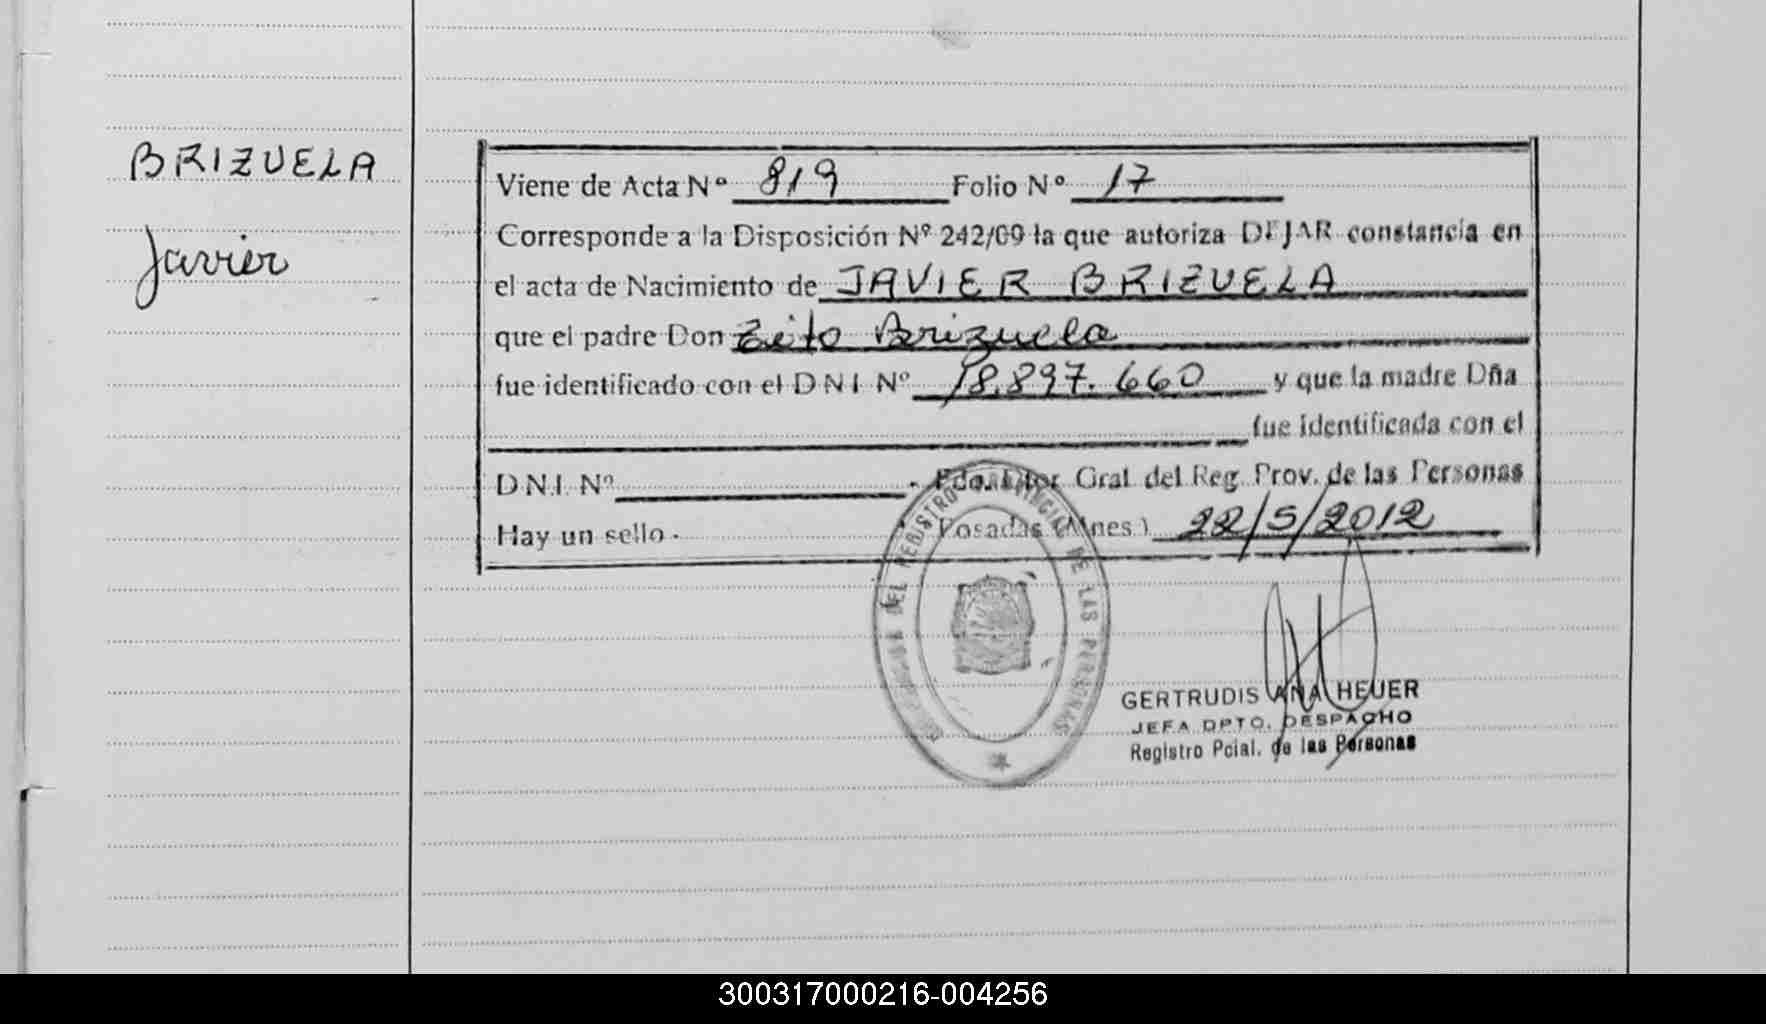 BRIZUELA
Javier
Viene de Acta Nº 819 Folio Nº 17
Corresponde a la Disposición Nº 242/09 la que autoriza DEJAR constancia en
el acta de Nacimiento de JAVIER BRIZUELA
que el padre Don Zito Brizuela
fue identificado con el D N I Nº 18.897.660 y que la madre Dña
fue identificada con el
D.N.I. Nº . Fdo. Dtor Gral del Reg. Prov. de las Personas
Hay un sello. Posadas (Mnes.) 22/5/2012
DEL REGISTRO PROVINCIAL DE LAS PERSONAS
GERTRUDIS ANA HEUER
JEFA DPTO. DESPACHO
Registro Pcial. de las Personas
300317000216-004256